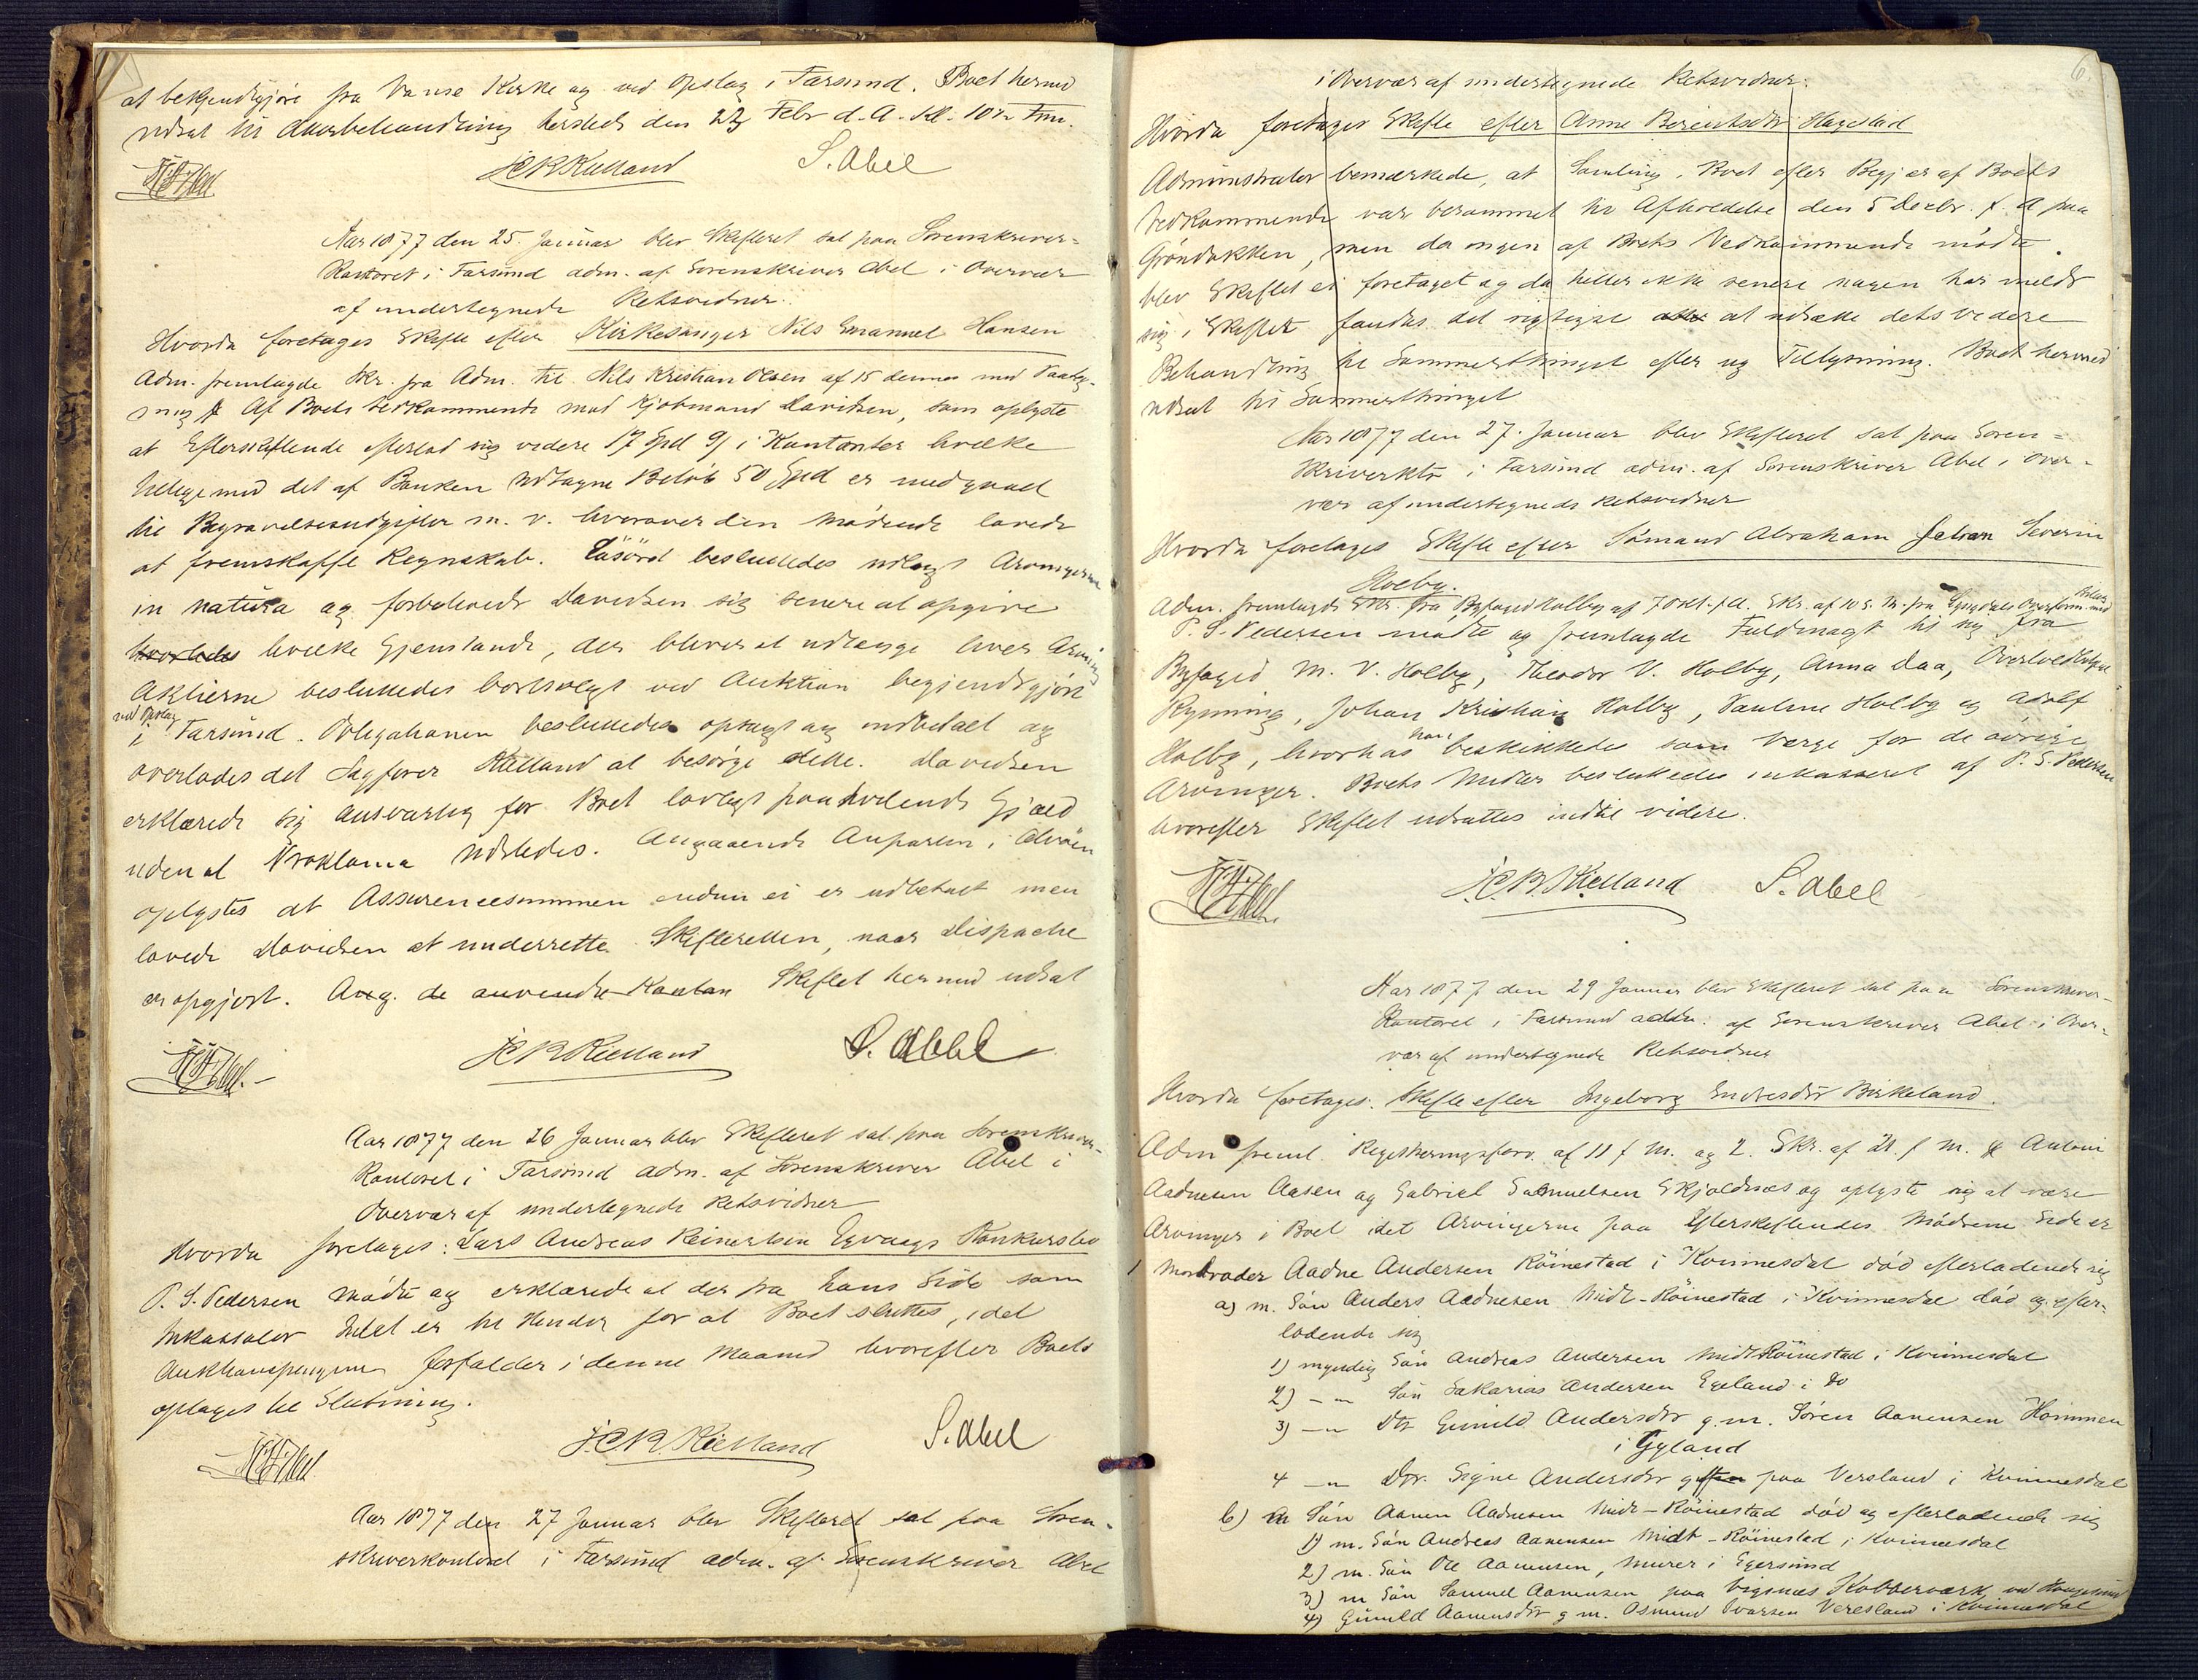 at bekjendtgjøre fra Vanse Kirke og ved Opslag i Farsund. Boet hermed
udsat til Skiftebehandling hersteds den 23 Febr d.A. Kl. 10 Fm.
JCRKielland S. Abel
Aar 1877 den 25. Januar blev Skifteret sat paa Sorenskriver=
Kontoret i Farsund adm. af Sorenskriver Abel i Overvær
af undertegnede Retsvidner.
Hvorda foretages Skifte efter Kirkesanger Nils Emanuel Hansen
Adm. fremlagde Skr. fra Adm. til Nils Kristian Olsen af 15 dennes med Paateg-
ning Af Boets Vedkommende mødte Kjøbmand Davidsen, som oplyste
at Efterskiftende efterlod sig videre 17 Spd 9/ i Kontanter hvilke
tilligemed det af Banken udtagne Beløb 50 Spd er medgaaet
til Begravelsesudgifter m. v. hvorover den mødende lovede
at fremskaffe Regnskab. Løsøret besluttedes udlagt Arvingerne
in natura og forbeholdt Davidsen sig senere at opgive
hvorledes hvilke Gjenstande, der bliver at udlægge hver Arving
Aktierne besluttedes bortsolgt ved Auktion begjendtgjort
ved Opslag
i Farsund. Obligationen besluttedes opsagt og indbetalt og
overlodes det Sagfører Kielland at besørge dette. Davidsen
erklærede sig ansvarlig for Boet lovligt paahvilende Gjæld
uden at Proklama udstedes. Angaaende Anparten i
oplystes at Assurancesummen endnu ei er udbetalt men
lovede Davidsen at underrette Skifteretten, naar Dispache
er opgjort. Ang. de anvendte Kontan Skiftet hermed udsat
JCRKielland S. Abel
Aar 1877 den 26 Januar blev Skifteret sat paa Sorenskriver-
Kontoret i Farsund adm. af Sorenskriver Abel i
Overvær af undertegnede Retsvidner
Hvorda foretages: Lars Andreas Reinertsen Egvaags Konkursbo
P. S. Pedersen mødte og erklærede at der fra hans Side som
Inkassator Intet er til Hinder for at Boet sluttes, idet
Auktionspengene forfalder i denne Maaned hvorefter Boets
optages til Slutning.
J.C.R. Kielland S. Abel
Aar 1877 den 27 Januar blev Skifteret sat paa Soren-
skriverkontoret i Farsund adm. af Sorenskriver Abel
6.
i Overvær af undertegnede Retsvidner:
Hvorda foretages Skifte efter Anne Berentsdtr Hagestad
Administrator bemærkede, at Samling i Boet efter Begjær af Boets
Vedkommende var berammet til Afholdelse den 5 Decbr. f. A paa
Grøndokken, men da ingen af Boets Vedkommende mødte
blev Skiftet ei foretaget og da heller ikke senere nogen har meldt
sig i Skiftet fandtes det rigtigst at udsætte dets videre
Behandling til Sommerthinget efter ny Tillysning. Boet hermed
udsat til Sommerthinget
Aar 1877 den 27. Januar blev Skifteret sat paa Soren=
skriverkt i Farsund adm. af Sorenskriver Abel i Over-
vær af undertegnede Retsvidner
Hvorda foretages Skifte efter Sømand Abraham Johan Severin
Holby.
Adm. fremlagde Skr. fra Byfoged Holby af 7 Okt. f.A. Skr. af 10 s. M. fra Lyngdals Overform. med
P. S. Pedersen mødte og fremlagde Fuldmagt til sig fra
Byfoged M. V. Holby, Theodor V. Holby, Anna Daa,
Rynning, Johan Kristian Holby, Pauline Holby og Adolf
Holby, hvorhos han beskikkedes som Værge for de øvrige
Arvinger. Boets Midler besluttedes inkasseret af P. S. Pedersen
hvorefter Skiftet udsattes indtil videre.
J.C.R. Kielland S. Abel
Aar 1877 den 29 Januar blev Skifteret sat paa Sorenskriver-
Kontoret i Farsund adm. af Sorenskriver Abel i Over-
vær af undertegnede Retsvidner
Hvorda foretages. Skifte efter Ingeborg Endresdtr Birkeland.
Adm freml. Registreringsforr. af 11 f M. og 2. Skr. af 21. f M. Antoni
Aadnesen Aasen og Gabriel Samuelsen Skjoldnæs og oplyste sig at være
Arvinger i Boet idet Arvingerne paa Efterskiftendes Mødrene Side er
1 Morbroder Aadne Andersen Røinestad i Kvinnesdal død efterladende sig
a) m. Søn Anders Aadnesen Midt-Røinestad i Kvinnesdal død og efter-
ladende sig
1) myndig Søn Andreas Andersen Midt Røinestad i Kvinnesdal
2) -"- Søn Sakarias Andersen Egeland i Do
3) -"- Dtr Gunild Andersdtr g.m. Søren Aanensen Hommen
i Gyland
4 -"- Dtr. Signe Andersdtr gift paa Versland i Kvinnesdal
b) m Søn Aanen Aadnesen Midt-Røinestad død og efterladende sig
1) m. Søn Andreas Aanensen Midt-Røinestad i Kvinnesdal
2) m. Søn Ole Aanensen, Murer i Egersund
3) m Søn Samuel Aanensen paa Vigsnæs Kobberværk ved Haugesund
4) Gunild Aanensdtr g m. Osmund Ivarsen Versland i Kvinnesdal